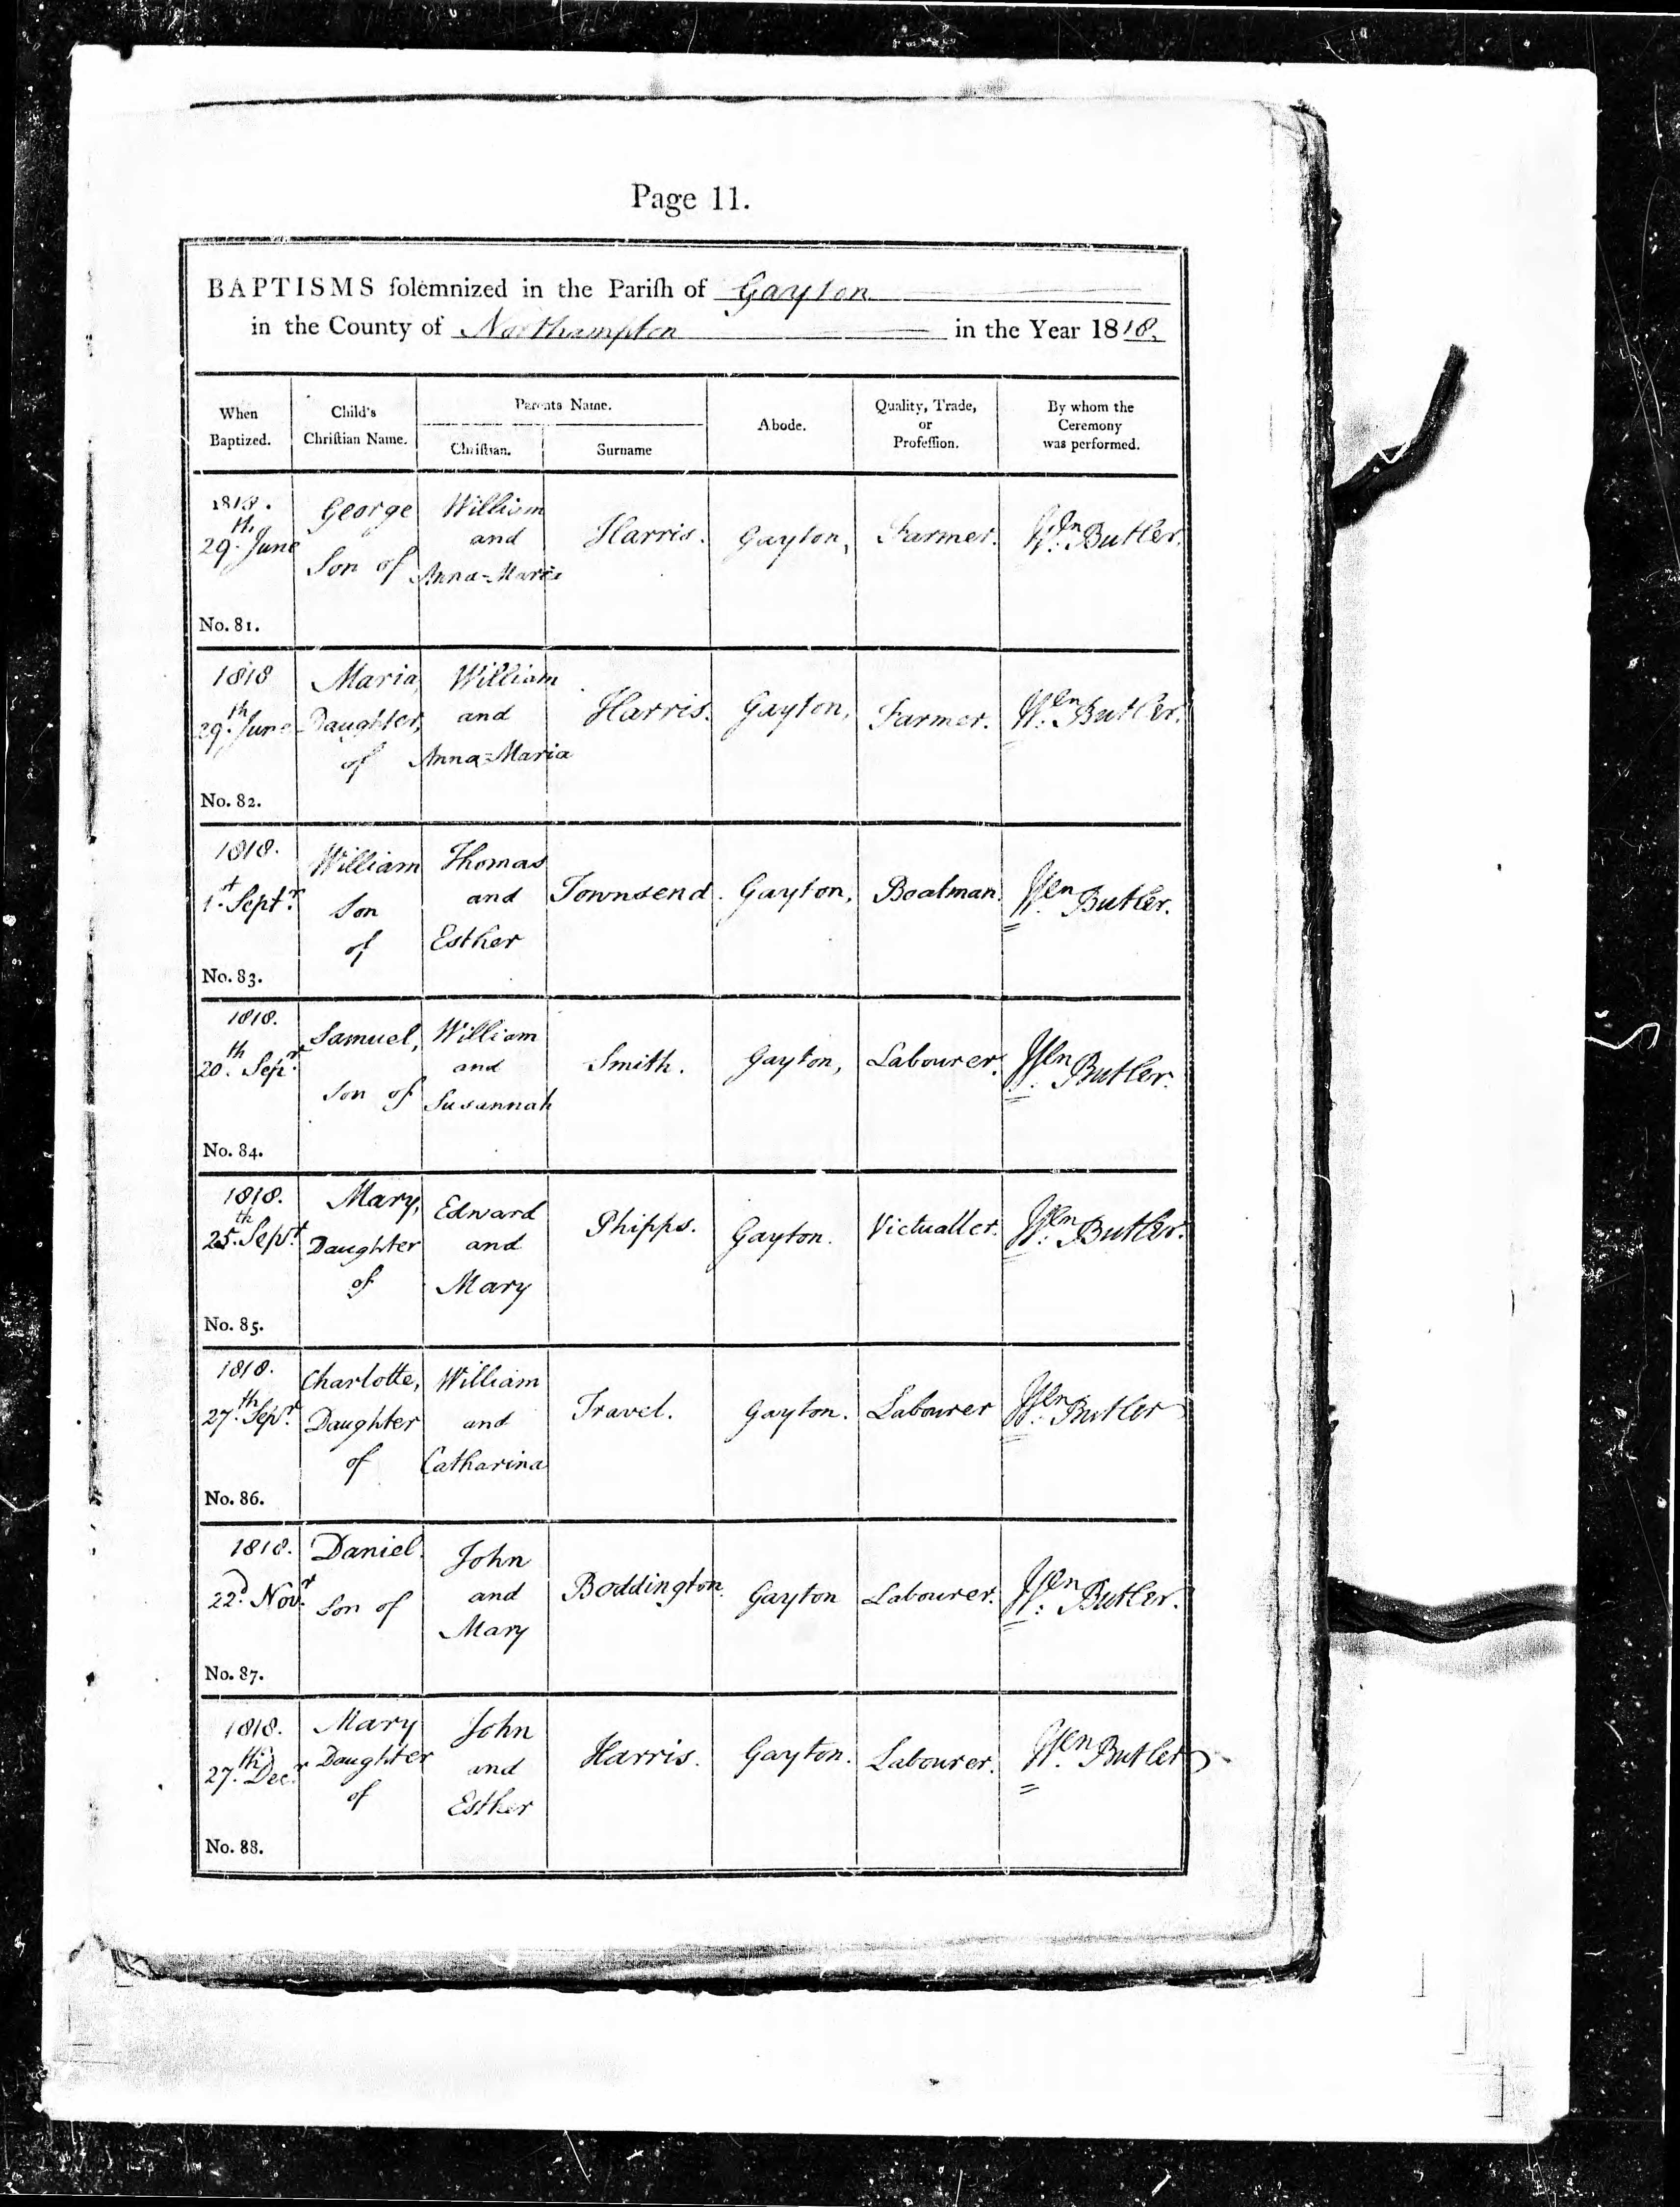 Page 11.
BAPTISMS solemnized in the Parish of Gayton
in the County of Northampton in the Year 1818.
When Baptized.
Child's Christian Name.
Parents Name.
Christian.
Surname
Abode.
Quality, Trade, or Profession.
By whom the Ceremony was performed.
1818.
29th June
No. 81.
George
Son of
William
and
Anna=Maria
Harris.
Gayton,
Farmer.
Wm Butler.
1818
29th June
No. 82.
Maria,
Daughter,
of
William
and
Anna=Maria
Harris.
Gayton,
Farmer.
Wm Butler.
1818.
1st Septr.
No. 83.
William
Son
of
Thomas
and
Esther
Townsend.
Gayton,
Boatman.
Wm Butler.
1818.
20th Sepr.
No. 84.
Samuel,
Son of
William
and
Susannah
Smith.
Gayton,
Labourer.
Wm Butler.
1818.
25th Sept.
No. 85.
Mary,
Daughter
of
Edward
and
Mary
Phipps.
Gayton.
Victualler.
Wm Butler.
1818.
27th Sepr.
No. 86.
Charlotte,
Daughter
of
William
and
Catharina
Travel.
Gayton.
Labourer
Wm Butler
1818.
22d Novr.
No. 87.
Daniel
Son of
John
and
Mary
Boddington.
Gayton
Labourer.
Wm Butler.
1818.
27th Decr.
No. 88.
Mary
Daughter
of
John
and
Esther
Harris.
Gayton.
Labourer.
Wm Butler